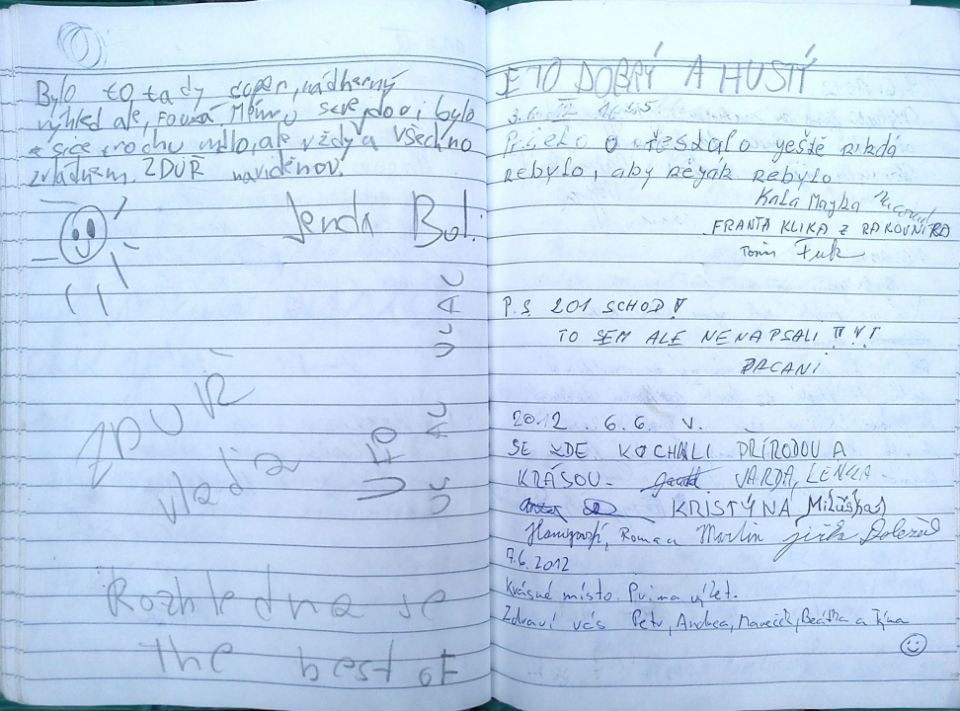 Bylo to tady super, nádherný
výhled ale, fouká
sice trochu málo, ale vždy a všechno
zvládnem. ZDUŘ naviděnou.
Jenda Bol.
ZDUŘ
vlada
UFO
Rozhledna se
the best of
JE TO DOBRÝ A HUSTÝ
3.6.
ještě nikdá
nebylo, aby nějak nebylo
Kala Majka
FRANTA KLIKA Z RAKOVNÍKA
Tomáš Fuk
P.S. 201 SCHODŮ
TO SEM ALE NENAPSALI !!!
PRCANI
2012. 6.6. V.
SE ZDE KOCHALI PŘÍRODOU A
KRÁSOU. JARDA, LENKA
KRISTÝNA
Roman Martin Jirka Doležal
7.6.2012
Krásné místo. Prima výlet.
Zdraví vás Petr, Andrea, Mareček, Beátka a Týna